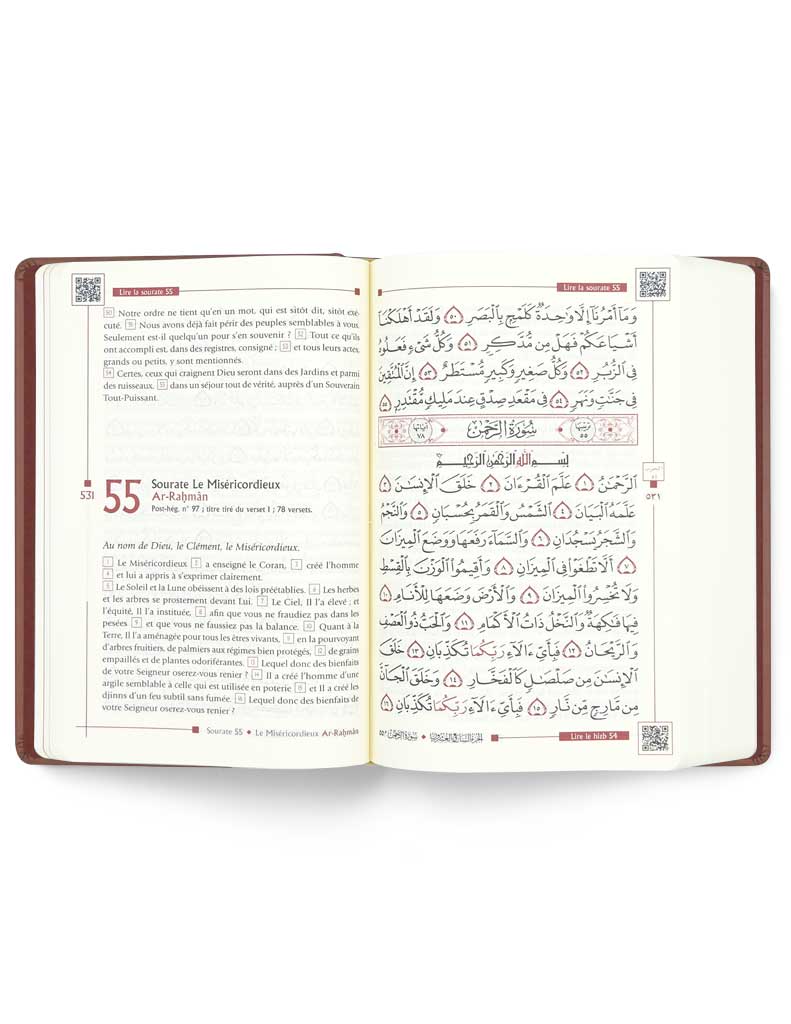 Lire la sourate 55
50 Notre ordre ne tient qu'en un mot, qui est sitôt dit, sitôt exé-
cuté. 51 Nous avons déjà fait périr des peuples semblables à vous.
Seulement est-il quelqu'un pour s'en souvenir ? 52 Tout ce qu'ils
ont accompli est, dans des registres, consigné ; 53 et tous leurs actes,
grands ou petits, y sont mentionnés.
54 Certes, ceux qui craignent Dieu seront dans des Jardins et parmi
des ruisseaux, 55 dans un séjour tout de vérité, auprès d'un Souverain
Tout-Puissant.
531
55
Sourate Le Miséricordieux
Ar-Raḥmân
Post-hég. n° 97 ; titre tiré du verset 1 ; 78 versets.
Au nom de Dieu, le Clément, le Miséricordieux.
1 Le Miséricordieux 2 a enseigné le Coran, 3 créé l'homme
4 et lui a appris à s'exprimer clairement.
5 Le Soleil et la Lune obéissent à des lois préétablies. 6 Les herbes
et les arbres se prosternent devant Lui. 7 Le Ciel, Il l'a élevé ; et
l'équité, Il l'a instituée, 8 afin que vous ne fraudiez pas dans les
pesées 9 et que vous ne faussiez pas la balance. 10 Quant à la
Terre, Il l'a aménagée pour tous les êtres vivants, 11 en la pourvoyant
d'arbres fruitiers, de palmiers aux régimes bien protégés, 12 de grains
empaillés et de plantes odoriférantes. 13 Lequel donc des bienfaits
de votre Seigneur oserez-vous renier ? 14 Il a créé l'homme d'une
argile semblable à celle qui est utilisée en poterie 15 et Il a créé les
djinns d'un feu subtil sans fumée. 16 Lequel donc des bienfaits de
votre Seigneur oserez-vous renier ?
Sourate 55 ◆ Le Miséricordieux Ar-Raḥmân
Lire la sourate 55
وَمَآ أَمْرُنَآ إِلَّا وَٰحِدَةٌ كَلَمْحٍۭ بِٱلْبَصَرِ ٥٠ وَلَقَدْ أَهْلَكْنَآ
أَشْيَاعَكُمْ فَهَلْ مِن مُّدَّكِرٍ ٥١ وَكُلُّ شَىْءٍ فَعَلُوهُ
فِى ٱلزُّبُرِ ٥٢ وَكُلُّ صَغِيرٍ وَكَبِيرٍ مُّسْتَطَرٌ ٥٣ إِنَّ ٱلْمُتَّقِينَ
فِى جَنَّٰتٍ وَنَهَرٍ ٥٤ فِى مَقْعَدِ صِدْقٍ عِندَ مَلِيكٍ مُّقْتَدِرٍۭ ٥٥
ترتيبها ٥٥ سُورَةُ الرَّحْمٰن آياتها ٧٨
بِسْمِ ٱللَّهِ ٱلرَّحْمَٰنِ ٱلرَّحِيمِ
ٱلرَّحْمَٰنُ ١ عَلَّمَ ٱلْقُرْءَانَ ٢ خَلَقَ ٱلْإِنسَٰنَ ٣
عَلَّمَهُ ٱلْبَيَانَ ٤ ٱلشَّمْسُ وَٱلْقَمَرُ بِحُسْبَانٍ ٥ وَٱلنَّجْمُ
وَٱلشَّجَرُ يَسْجُدَانِ ٦ وَٱلسَّمَآءَ رَفَعَهَا وَوَضَعَ ٱلْمِيزَانَ
٧ أَلَّا تَطْغَوْا۟ فِى ٱلْمِيزَانِ ٨ وَأَقِيمُوا۟ ٱلْوَزْنَ بِٱلْقِسْطِ
وَلَا تُخْسِرُوا۟ ٱلْمِيزَانَ ٩ وَٱلْأَرْضَ وَضَعَهَا لِلْأَنَامِ ١٠
فِيهَا فَٰكِهَةٌ وَٱلنَّخْلُ ذَاتُ ٱلْأَكْمَامِ ١١ وَٱلْحَبُّ ذُو ٱلْعَصْفِ
وَٱلرَّيْحَانُ ١٢ فَبِأَىِّ ءَالَآءِ رَبِّكُمَا تُكَذِّبَانِ ١٣ خَلَقَ
ٱلْإِنسَٰنَ مِن صَلْصَٰلٍ كَٱلْفَخَّارِ ١٤ وَخَلَقَ ٱلْجَآنَّ
مِن مَّارِجٍ مِّن نَّارٍ ١٥ فَبِأَىِّ ءَالَآءِ رَبِّكُمَا تُكَذِّبَانِ ١٦
٥٣١
الجزء السابع والعشرون ◆ سورة الرحمن
Lire le hizb 54